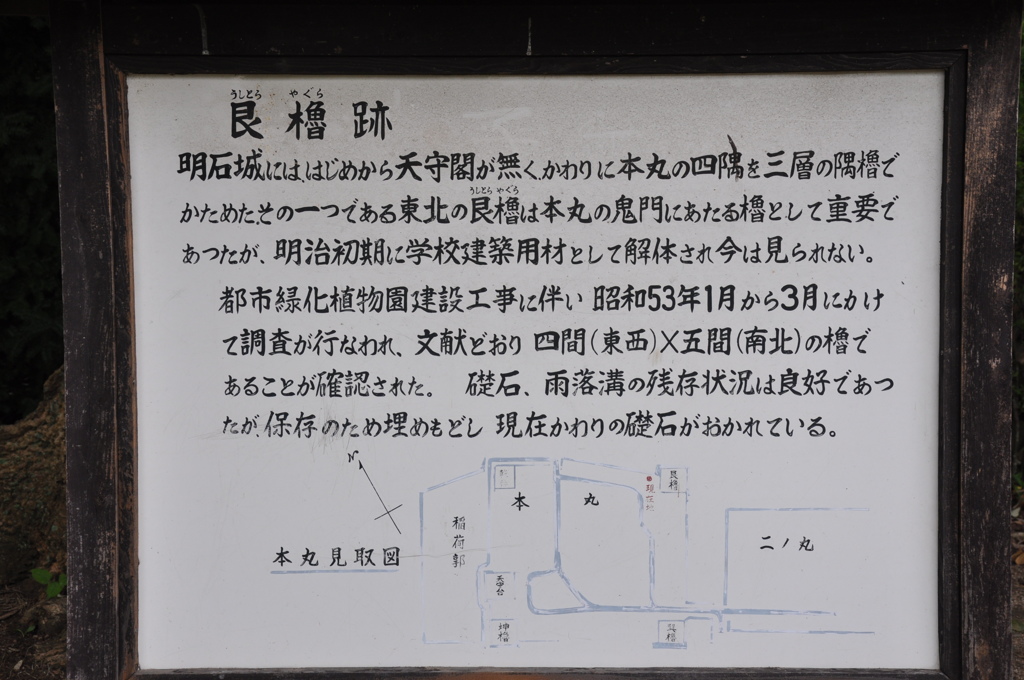 うしとら やぐら
艮櫓跡
明石城には、はじめから天守閣が無く、かわりに本丸の四隅を三層の隅櫓で
うしとら やぐら
かためた。その一つである東北の艮櫓は本丸の鬼門にあたる櫓として重要で
あつたが、明治初期に学校建築用材として解体され今は見られない。
都市緑化植物園建設工事に伴い 昭和53年1月から3月にかけ
て調査が行なわれ、文献どおり 四間(東西)×五間(南北)の櫓で
あることが確認された。 礎石、雨落溝の残存状況は良好であつ
たが、保存のため埋めもどし 現在かわりの礎石がおかれている。
N
本丸見取図
稲荷郭
本丸
天守台
坤櫓
現在地
艮櫓
巽櫓
二ノ丸